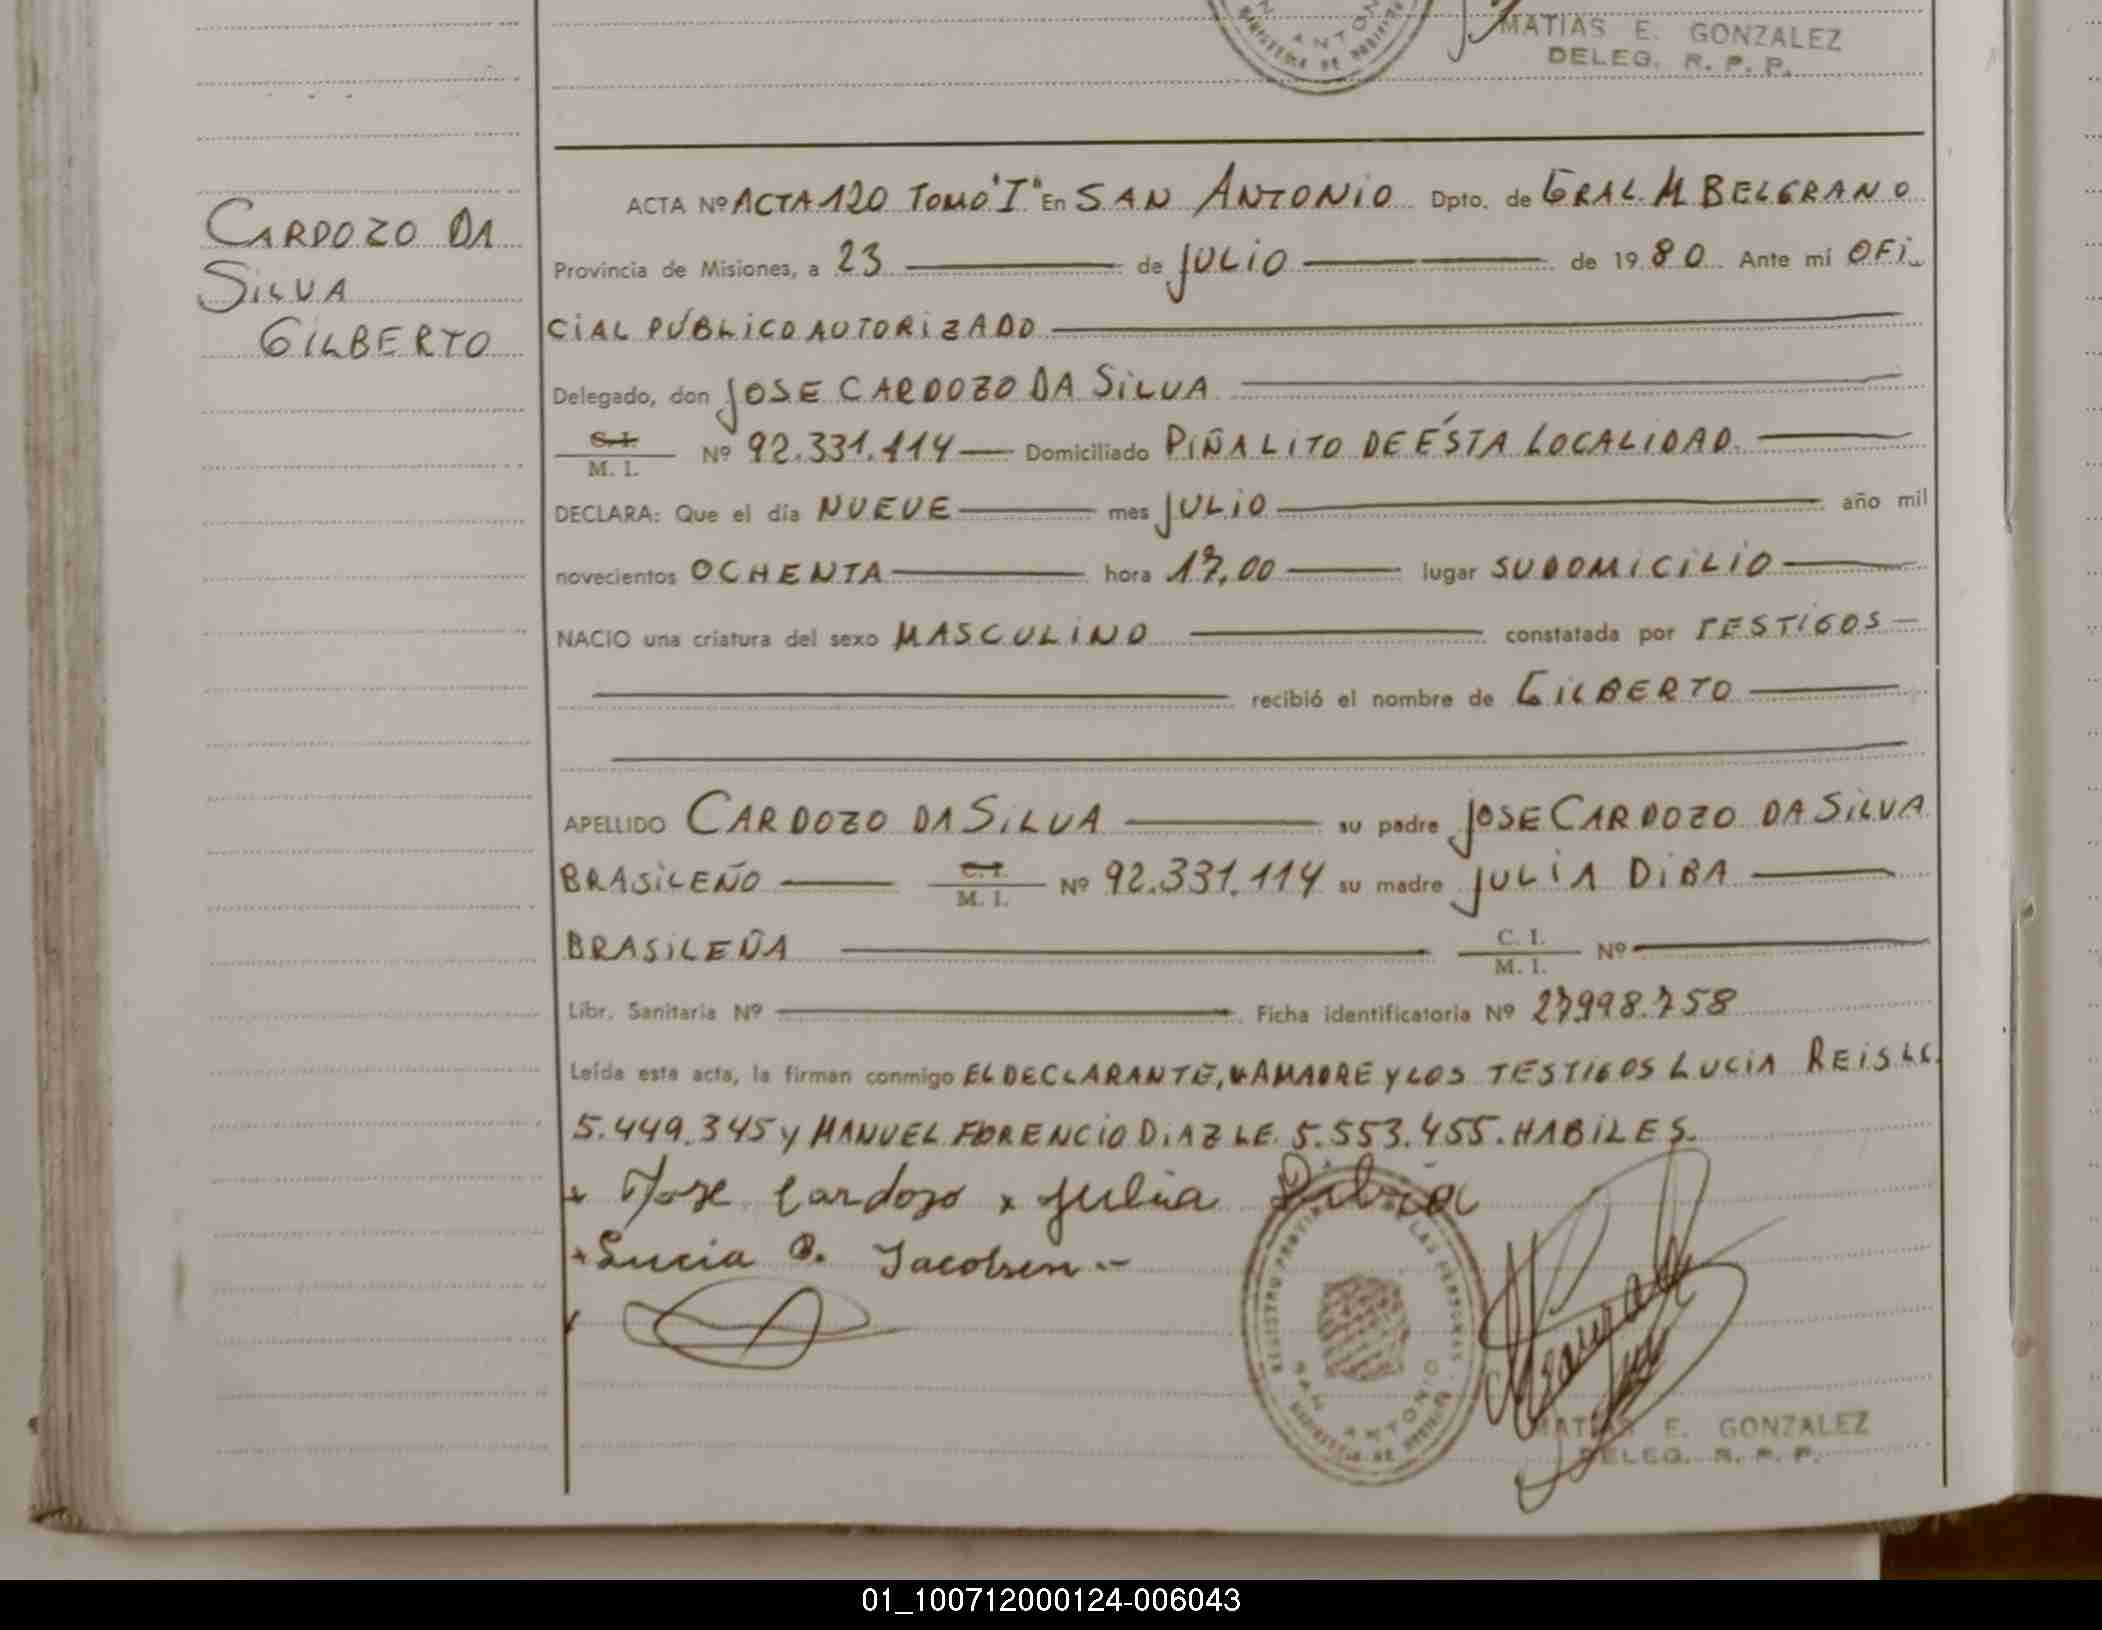 MATIAS E. GONZALEZ
DELEG. R. P. P.
CARDOZO DA
SILVA
GILBERTO
ACTA Nº ACTA 120 TOMO "I" En SAN ANTONIO Dpto. de GRAL. M BELGRANO
Provincia de Misiones, a 23 de JULIO de 1980 Ante mí OFI
CIAL PÚBLICO AUTORIZADO
Delegado, don JOSE CARDOZO DA SILVA
C. I.
M. I. Nº 92.331.114 Domiciliado PIÑALITO DE ÉSTA LOCALIDAD.
DECLARA: Que el día NUEVE mes JULIO año mil
novecientos OCHENTA hora 17,00 lugar SU DOMICILIO
NACIO una criatura del sexo MASCULINO constatada por TESTIGOS
recibió el nombre de GILBERTO
APELLIDO CARDOZO DA SILVA su padre JOSE CARDOZO DA SILVA
BRASILEÑO C. I. M. I. Nº 92.331.114 su madre JULIA DIBA
BRASILEÑA C. I. M. I. Nº
Libr. Sanitaria Nº Ficha identificatoria Nº 27.998.758
Leída esta acta, la firman conmigo EL DECLARANTE, LA MADRE Y LOS TESTIGOS LUCIA REIS LC.
5.449.345 y MANUEL FLORENCIO DIAZ LE. 5.553.455. HABILES.
x Jose Cardozo x Julia
x Lucia Jacobsen
REGISTRO PROVINCIAL DE LAS PERSONAS
SAN ANTONIO
MATIAS E. GONZALEZ
DELEG. R. P. P.
01_100712000124-006043